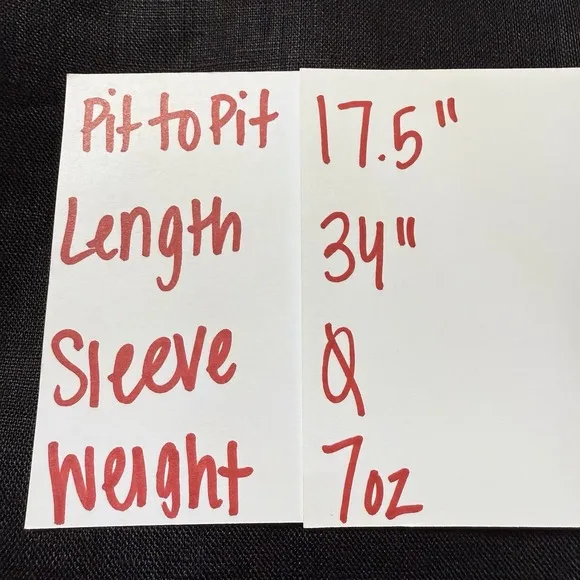 Pit to Pit 17.5"
Length 34"
Sleeve Ø
Weight 7oz